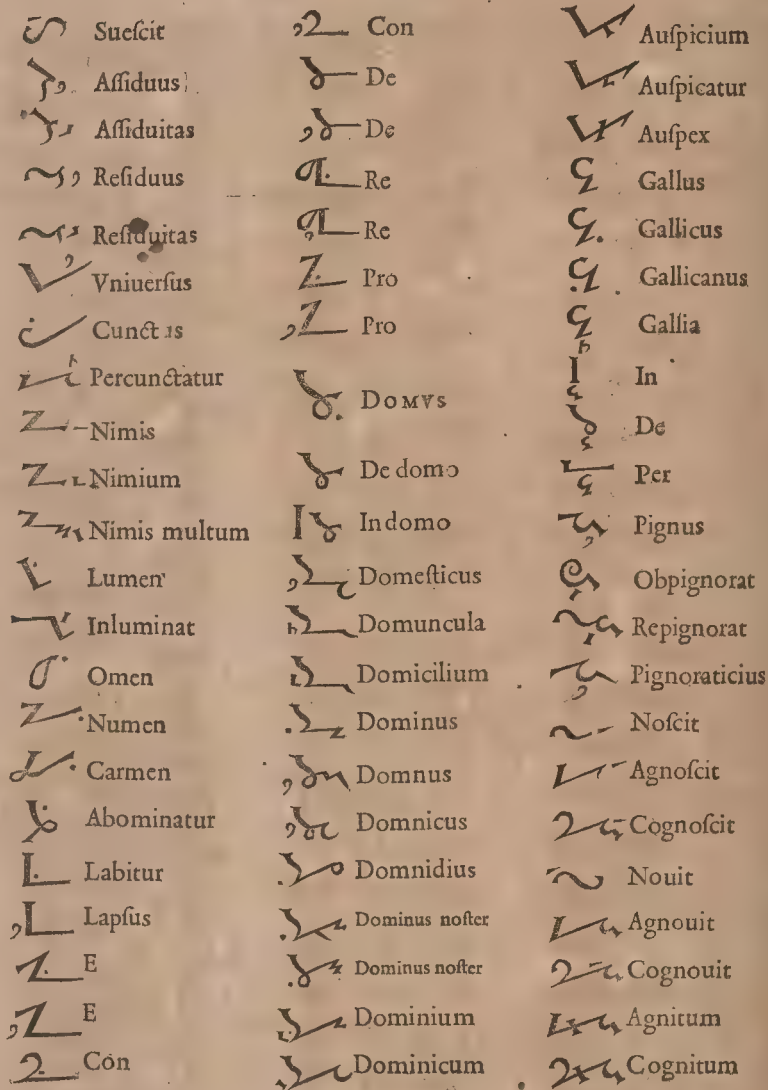 Sueſcit
Aſſiduus
Aſſiduitas
Reſiduus
Reſiduitas
Vniuerſus
Percunctatur
Nimis
Nimium
Nimis multum
Lumen
Inluminat
Omen
Numen
Carmen
Abominatur
Labitur
Lapſus
E
E
Con
Con
De
De
Re
Re
Pro
Pro
DOMVS
De domo
In domo
Domeſticus
Domuncula
Domicilium
Dominus
Domnus
Domnicus
Domnidius
Dominus noſter
Dominus noſter
Dominium
Dominicum
Auſpicium
Auſpicatur
Auſpex
Gallus
Gallicus
Gallicanus
Gallia
In
De
Per
Pignus
Obpignorat
Repignorat
Pignoraticius
Noſcit
Agnoſcit
Cognoſcit
Nouit
Agnouit
Cognouit
Agnitum
Cognitum